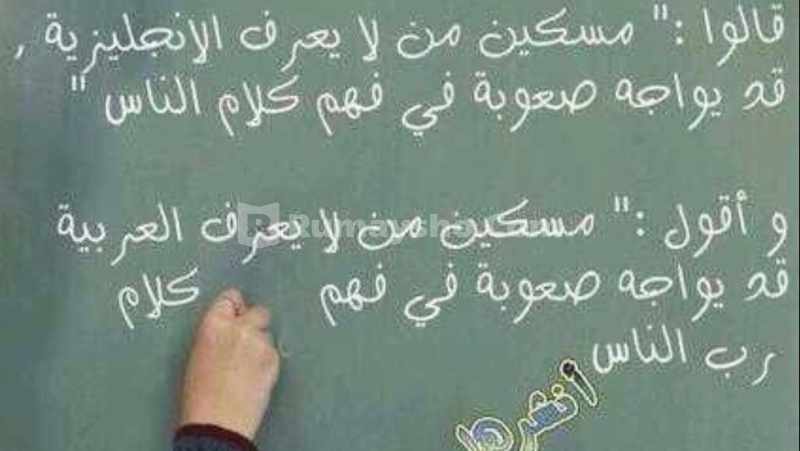 قالوا : " مسكين من لا يعرف الإنجليزية ,
قد يواجه صعوبة في فهم كلام الناس "
و أقول : " مسكين من لا يعرف العربية
قد يواجه صعوبة في فهم كلام
رب الناس
Rumaysho.Com